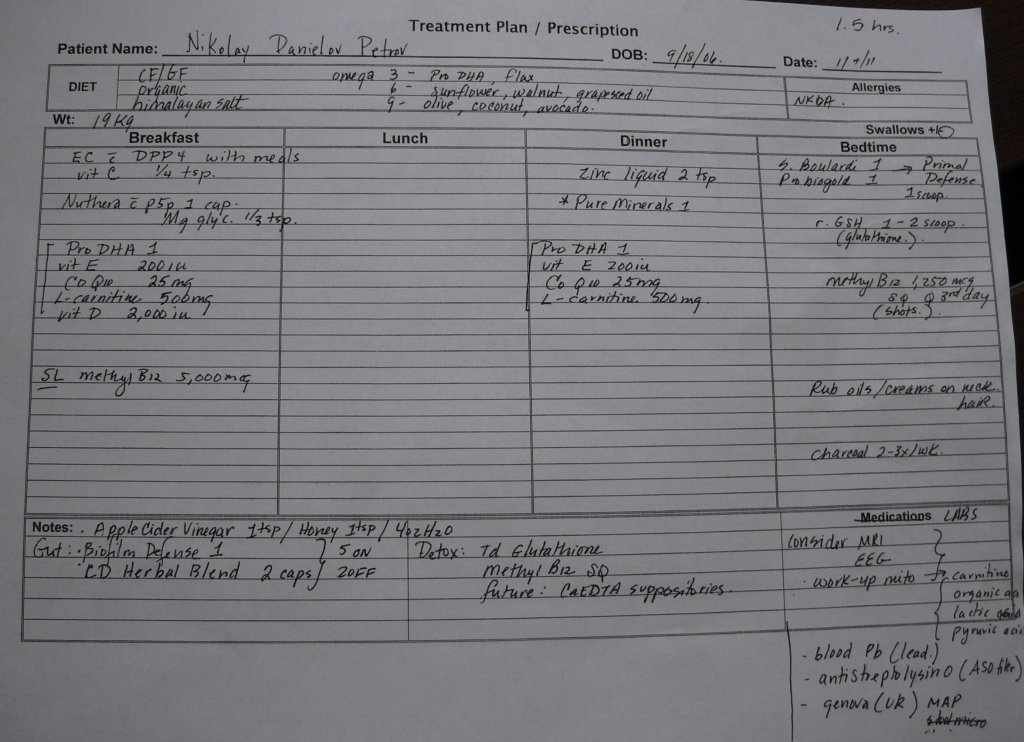 Treatment Plan / Prescription
1.5 hrs.
Patient Name: Nikolay Danielov Petrov DOB: 9/18/06. Date: 11/7/11
DIET
CF/GF
organic
himalayan salt
omega 3 - Pro DHA, flax
6 - sunflower, walnut, grapeseed oil
9 - olive, coconut, avocado.
Allergies
NKDA.
Wt: 19 Kg
Swallows +/-
Breakfast
EC c̄ DPP4 with meals
vit C 1/4 tsp.
Nuthera c̄ p5p 1 cap.
Mg glyc. 1/3 tsp.
Pro DHA 1
vit E 200iu
CoQ10 25mg
L-carnitine 500mg
vit D 2,000iu
SL methyl B12 5,000mcg
Lunch
Dinner
Zinc liquid 2 tsp
* Pure Minerals 1
Pro DHA 1
vit E 200iu
CoQ10 25mg
L-carnitine 500mg.
Bedtime
S. Boulardi 1 → Primal
Probiogold 1 Defense
1 scoop.
r. GSH 1-2 scoop.
(glutathione.).
methyl B12 1,250 mcg
SQ Q 3rd day
(shots.).
Rub oils/creams on neck.
hair.
Charcoal 2-3x/wk.
Notes: . Apple Cider Vinegar 1tsp / Honey 1tsp / 4oz H2O
Gut: · Biofilm Defense 1 } 5 ON
· CD Herbal Blend 2 caps } 2 OFF
Detox: Td Glutathione
methyl B12 SQ
future: CaEDTA suppositories.
Medications LABS
Consider MRI
EEG
· work-up mito → carnitine
organic
lactic
pyruvic
- blood Pb (lead.)
- antistreptolysin O (ASO titer)
- genova (UK) MAP
stool micro